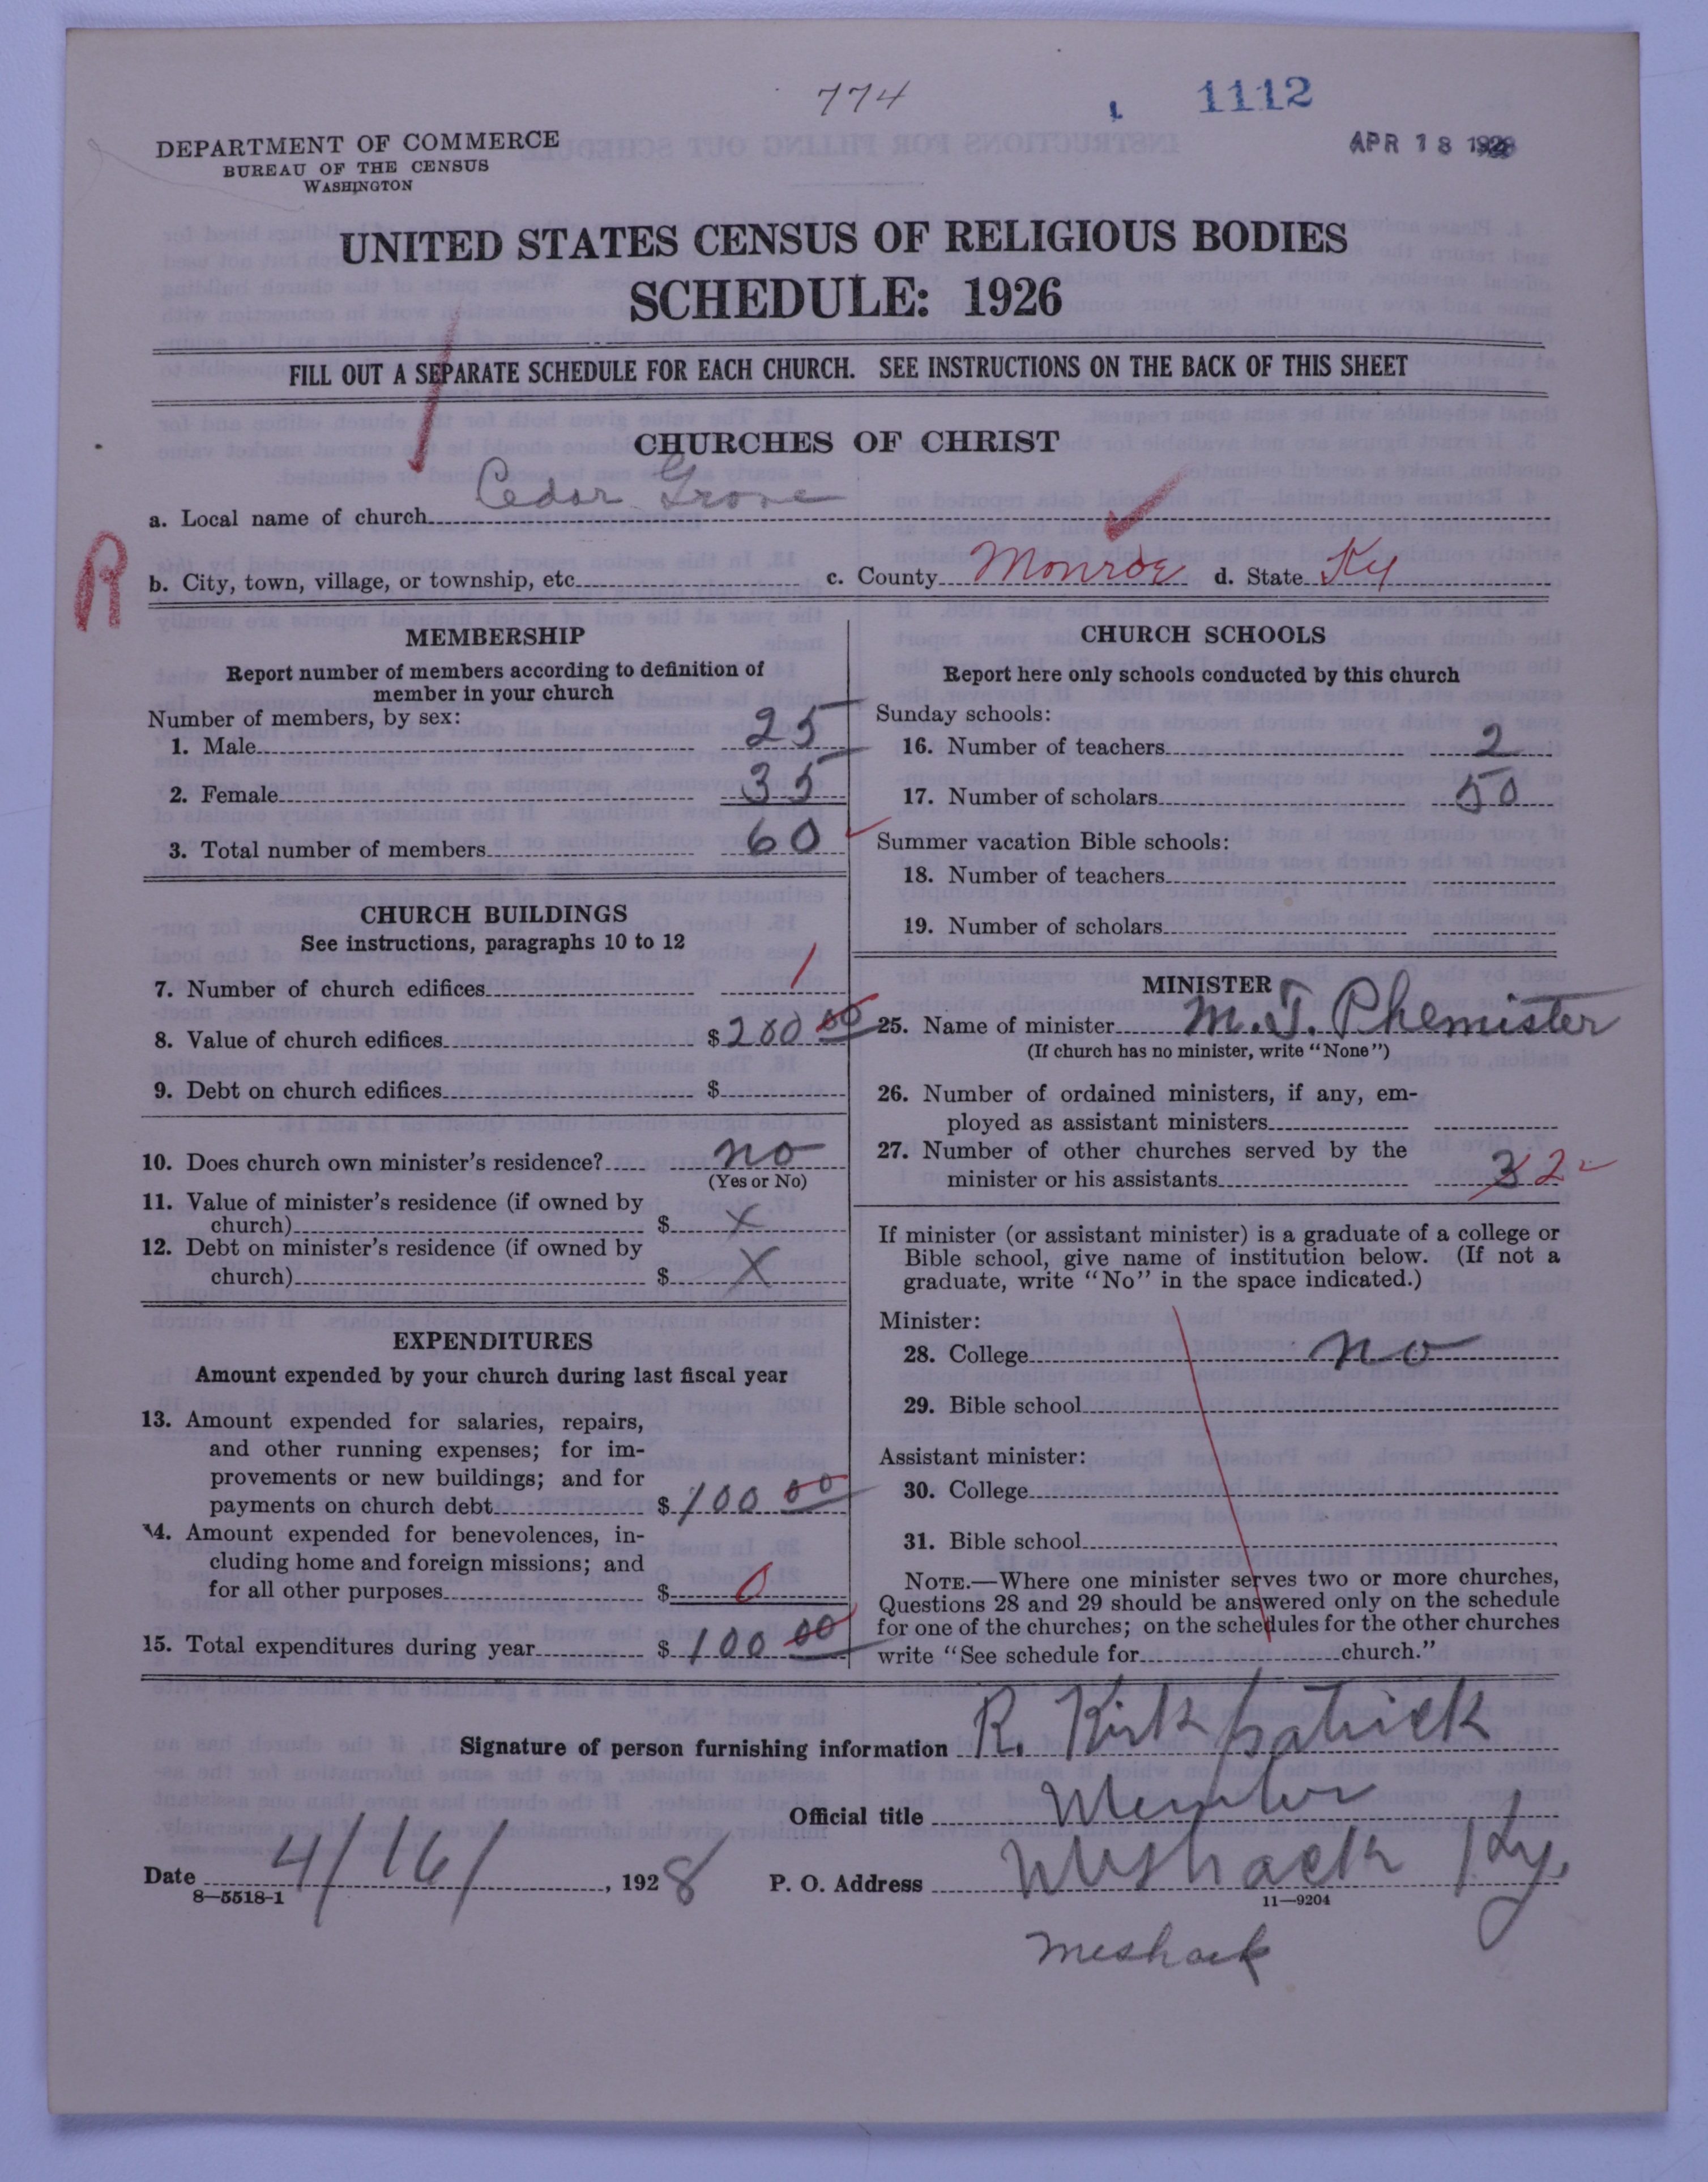 774
1112
APR 18 1928
DEPARTMENT OF COMMERCE
BUREAU OF THE CENSUS
WASHINGTON
UNITED STATES CENSUS OF RELIGIOUS BODIES
SCHEDULE: 1926
FILL OUT A SEPARATE SCHEDULE FOR EACH CHURCH. SEE INSTRUCTIONS ON THE BACK OF THIS SHEET
CHURCHES OF CHRIST
a. Local name of church Cedar Grove
R
b. City, town, village, or township, etc. c. County Monroe d. State Ky
MEMBERSHIP
Report number of members according to definition of
member in your church
Number of members, by sex:
1. Male 25
2. Female 35
3. Total number of members 60
CHURCH BUILDINGS
See instructions, paragraphs 10 to 12
7. Number of church edifices 1
8. Value of church edifices $200 00
9. Debt on church edifices $
10. Does church own minister's residence? no
(Yes or No)
11. Value of minister's residence (if owned by
church) $ X
12. Debt on minister's residence (if owned by
church) $ X
EXPENDITURES
Amount expended by your church during last fiscal year
13. Amount expended for salaries, repairs,
and other running expenses; for im-
provements or new buildings; and for
payments on church debt $100 00
14. Amount expended for benevolences, in-
cluding home and foreign missions; and
for all other purposes $ 0
15. Total expenditures during year $ 100 00
CHURCH SCHOOLS
Report here only schools conducted by this church
Sunday schools:
16. Number of teachers 2
17. Number of scholars 50
Summer vacation Bible schools:
18. Number of teachers
19. Number of scholars
MINISTER
25. Name of minister M. T. Phemister
(If church has no minister, write "None")
26. Number of ordained ministers, if any, em-
ployed as assistant ministers
27. Number of other churches served by the
minister or his assistants 3 2
If minister (or assistant minister) is a graduate of a college or
Bible school, give name of institution below. (If not a
graduate, write "No" in the space indicated.)
Minister:
28. College no
29. Bible school
Assistant minister:
30. College
31. Bible school
NOTE.—Where one minister serves two or more churches,
Questions 28 and 29 should be answered only on the schedule
for one of the churches; on the schedules for the other churches
write "See schedule for church."
Signature of person furnishing information R. Kirkpatrick
Official title Member
Date 4/16/, 1928 P. O. Address Meshack Ky.
8—5518-1 11—9204
Meshack